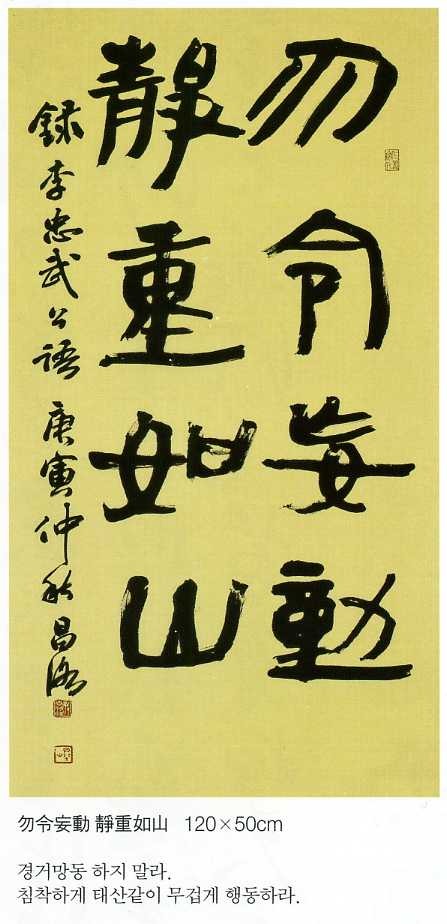 勿令妄動
靜重如山
録李忠武公語 庚寅仲秋 昌
勿令妄動 靜重如山 120×50cm
경거망동 하지 말라.
침착하게 태산같이 무겁게 행동하라.